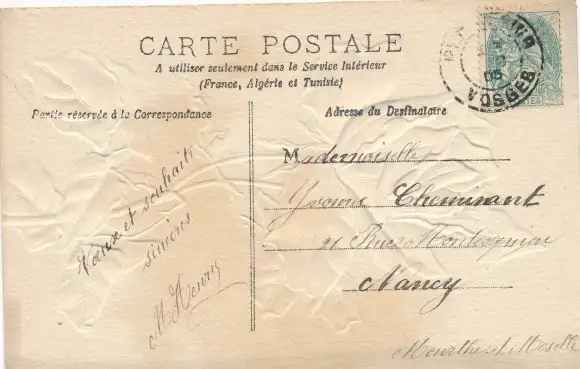 CARTE POSTALE
A utiliser seulement dans le Service Intérieur
(France, Algérie et Tunisie)
Partie réservée à la Correspondance
Adresse du Destinataire
Vœux et souhaits
sincères
M. Henry
Mademoiselle
Yvonne Cheminant
21 Rue
Nancy
Meurthe et Moselle
05
VOSGES
POSTES